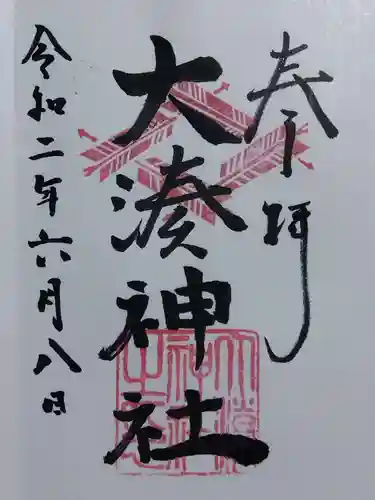 奉拝
大湊神社
令和二年六月八日